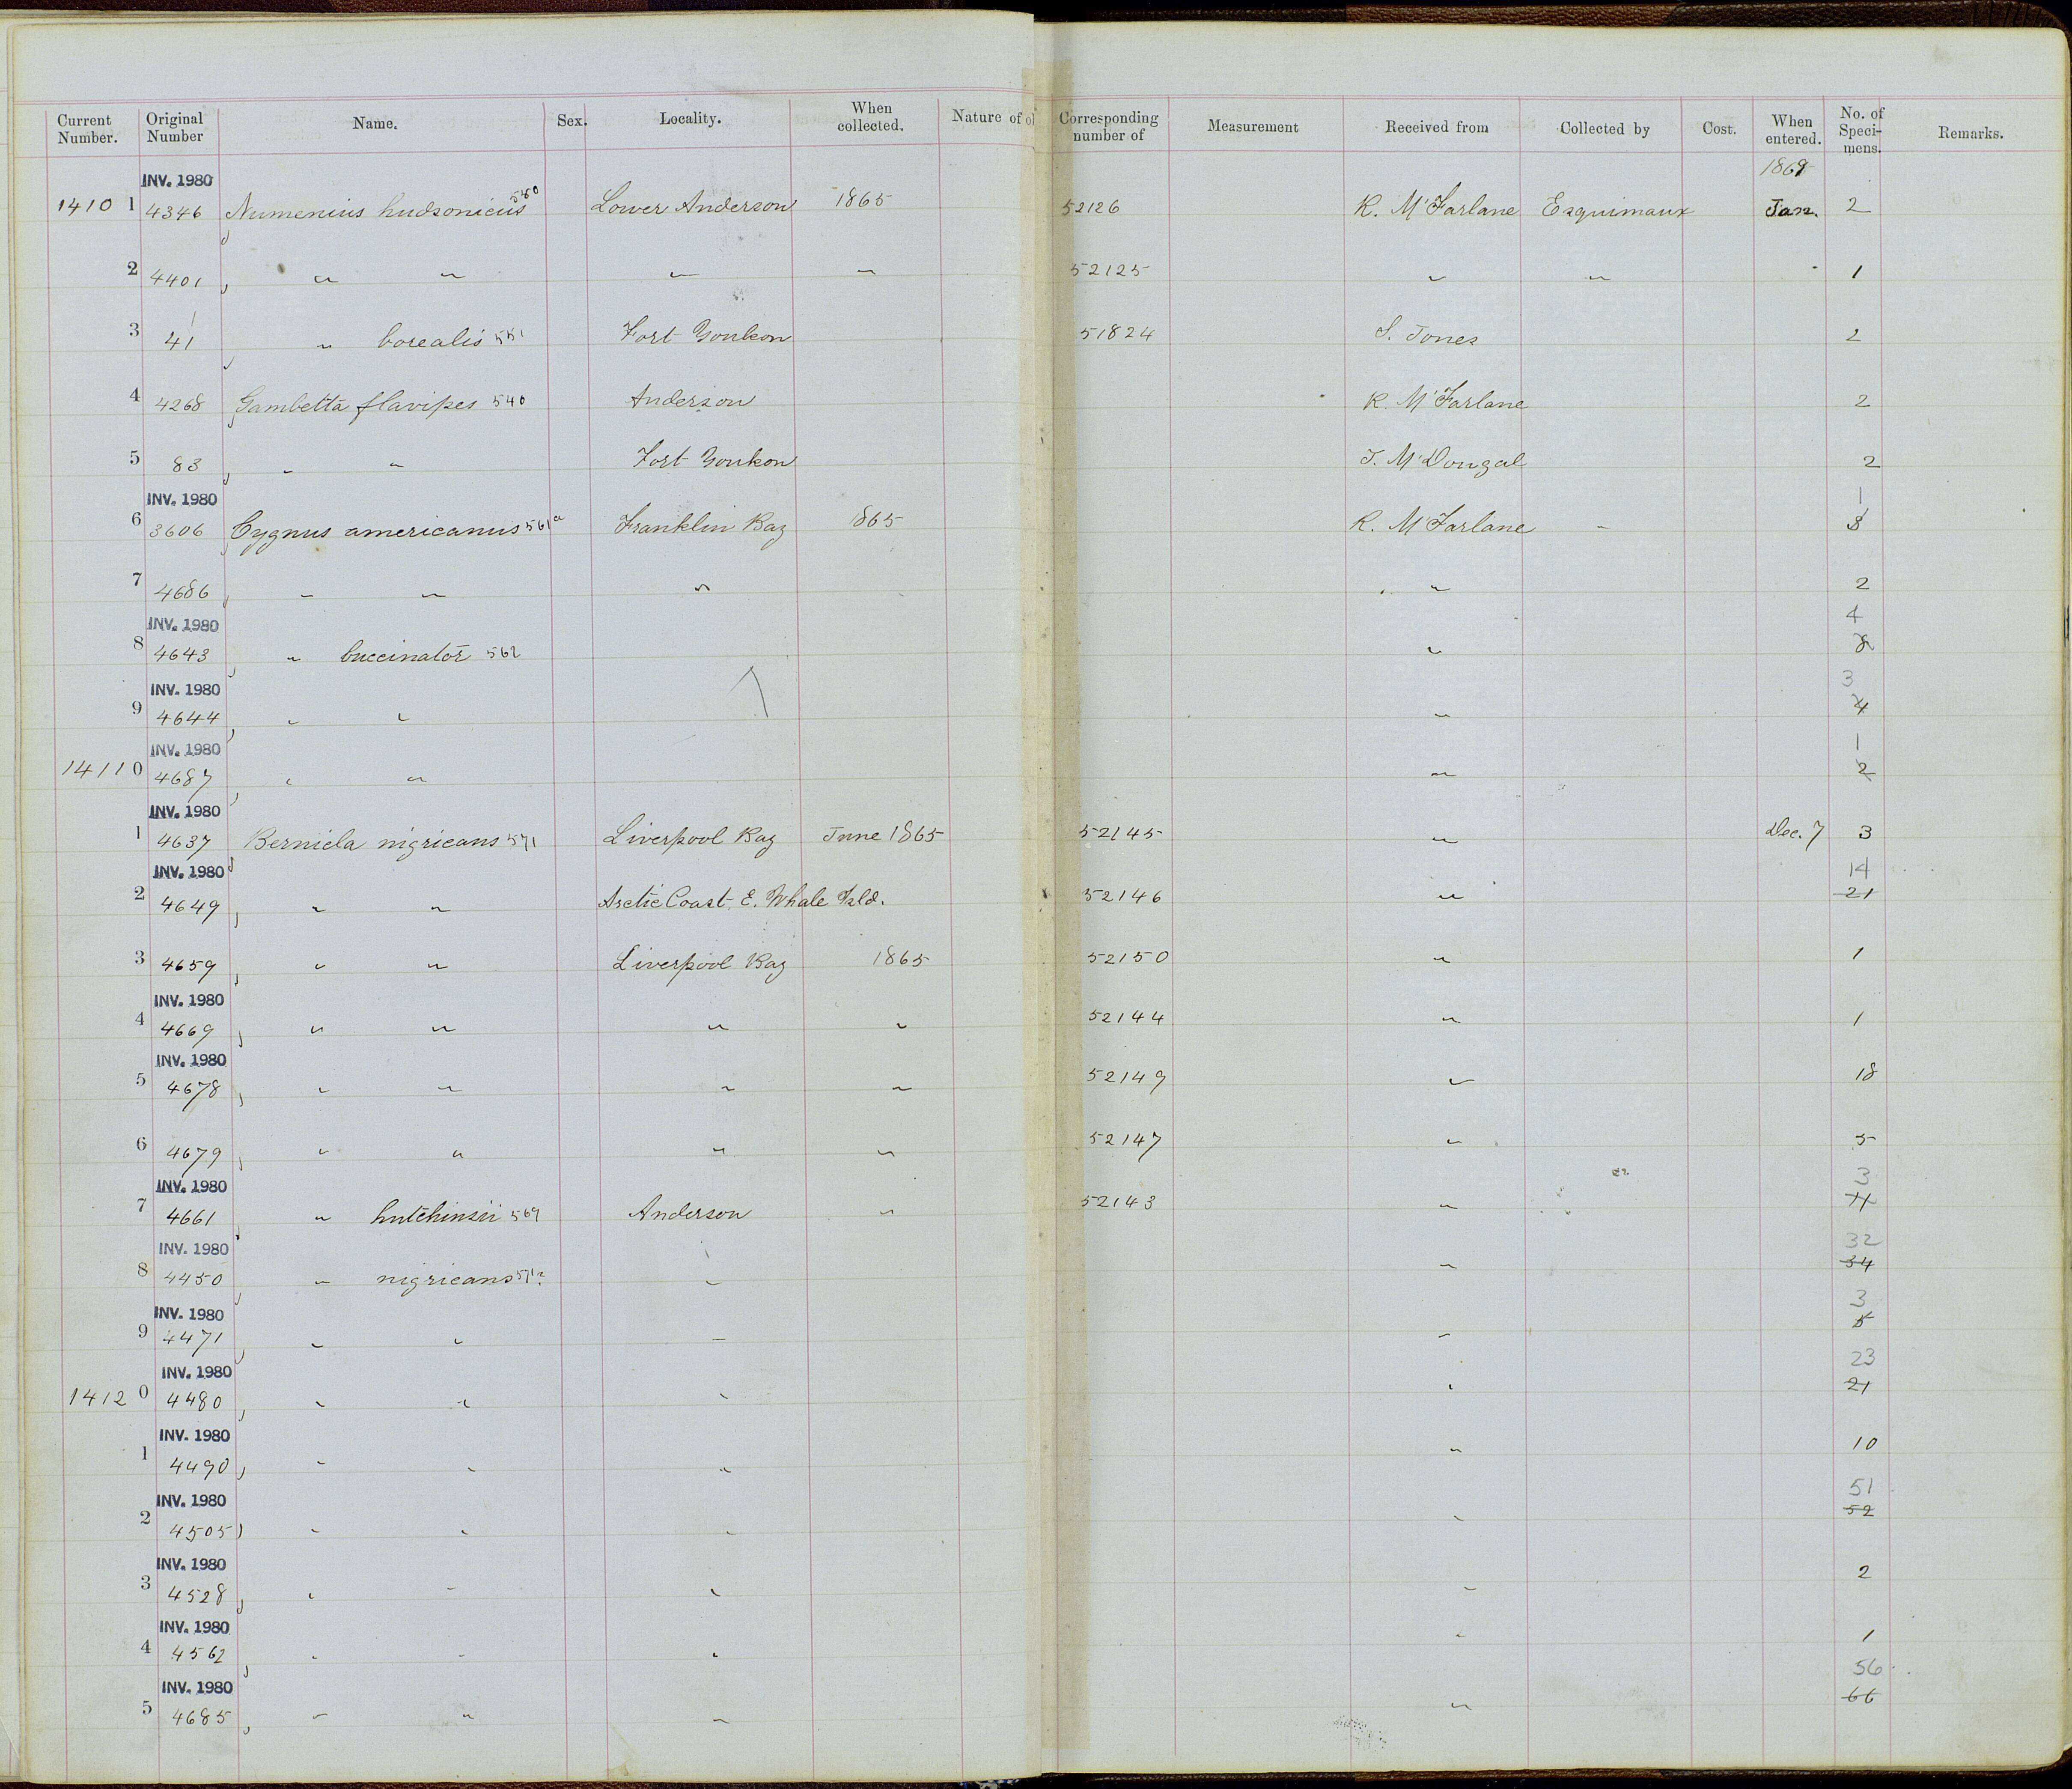 Current Number. Original Number Name. Sex. Locality. When collected. Nature of o Corresponding number of Measurement Received from Collected by Cost. When entered. No. of Speci-mens. Remarks.
INV. 1980 1869
1410 1 4346 Numenius hudsonicus 550 Lower Anderson 1865 52126 R. McFarlane Esquimaux Jan. 2
2 4401 " " " " 52125 " " 1
3 41 " borealis 551 Fort Youkon 51824 S. Jones 2
4 4268 Gambetta flavipes 540 Anderson R. McFarlane 2
5 83 " " Fort Youkon J. McDougal 2
INV. 1980 1
6 3606 Cygnus americanus 561a Franklin Bay 1865 R. McFarlane " 3
7 4686 " " " " 2
INV. 1980 4
8 4643 " buccinator 562 "
INV. 1980 3
9 4644 " " " 4
INV. 1980 1
14110 4687 " " " 2
INV. 1980
1 4637 Bernicla nigricans 571 Liverpool Bay June 1865 52145 " Dec. 7 3
INV. 1980 14
2 4649 " " Arctic Coast E. Whale Isld. 52146 " 21
3 4659 " " Liverpool Bay 1865 52150 " 1
INV. 1980
4 4669 " " " " 52144 " 1
INV. 1980
5 4678 " " " " 52149 " 18
6 4679 " " " " 52147 " 5
INV. 1980 3
7 4661 " hutchinsii 569 Anderson " 52143 " 4
INV. 1980 32
8 4450 " nigricans 571? " " 34
INV. 1980 3
9 4471 " " " " 5
INV. 1980 23
1412 0 4480 " " " " 21
INV. 1980
1 4490 " " " " 10
INV. 1980 51
2 4505 " " " " 52
INV. 1980
3 4528 " " " " 2
INV. 1980
4 4562 " " " " 1
INV. 1980 56
5 4685 " " " " 66